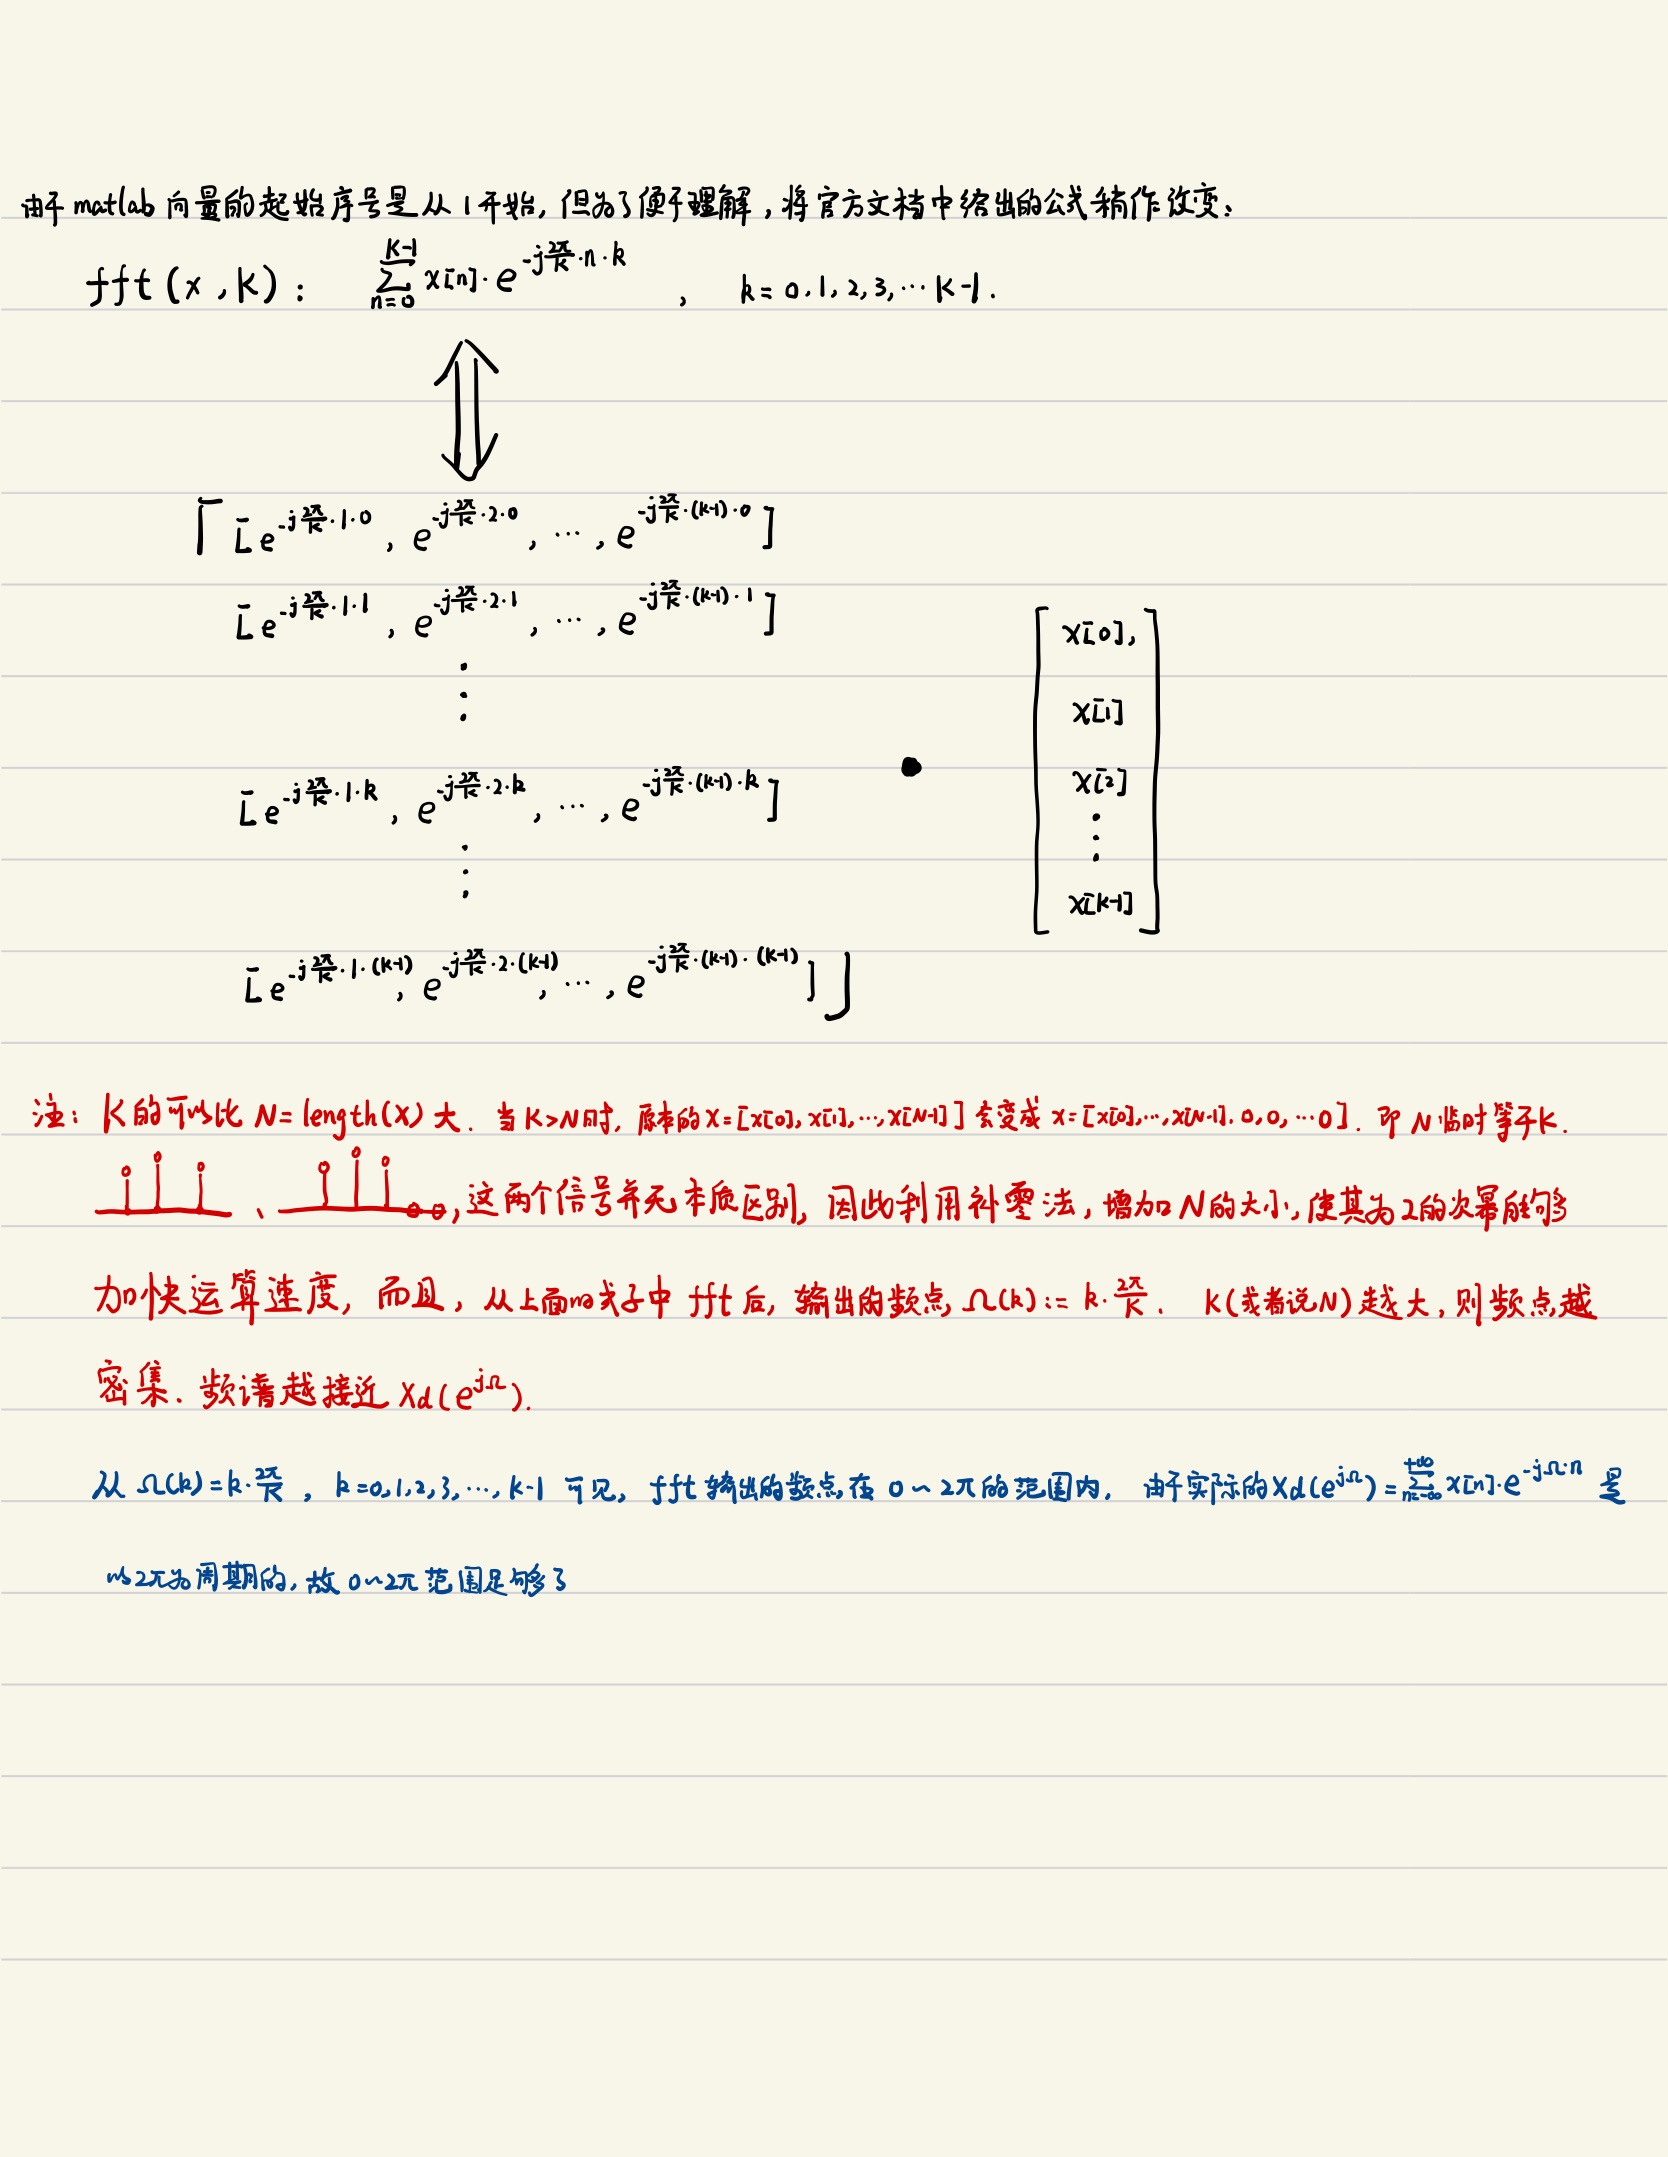 由于 matlab 向量的起始序号是从 1 开始, 但为了便于理解, 将官方文档中给出的公式稍作改变:
fft (x, K): \sum_{n=0}^{K-1} x[n]·e^{-j\frac{2π}{K}·n·k} , k = 0, 1, 2, 3, ⋯ K-1.
[e^{-j\frac{2π}{K}·1·0}, e^{-j\frac{2π}{K}·2·0}, ⋯, e^{-j\frac{2π}{K}·(K-1)·0}]
[e^{-j\frac{2π}{K}·1·1}, e^{-j\frac{2π}{K}·2·1}, ⋯, e^{-j\frac{2π}{K}·(K-1)·1}]
⋮
[e^{-j\frac{2π}{K}·1·k}, e^{-j\frac{2π}{K}·2·k}, ⋯, e^{-j\frac{2π}{K}·(K-1)·k}]
⋮
[e^{-j\frac{2π}{K}·1·(K-1)}, e^{-j\frac{2π}{K}·2·(K-1)}, ⋯, e^{-j\frac{2π}{K}·(K-1)·(K-1)}]
•
x[0],
x[1]
x[2]
⋮
x[K-1]
注: K的可以比 N = length(x) 大. 当 K>N 时, 原本的 x = [x[0], x[1], ⋯, x[N-1]] 会变成 x = [x[0], ⋯, x[N-1], 0, 0, ⋯ 0]. 即 N 临时等于 K.
、 , 这两个信号并无本质区别, 因此利用补零法, 增加 N 的大小, 使其为 2 的次幂能够
加快运算速度, 而且, 从上面的式子中 fft 后, 输出的频点, Ω(k) := k·\frac{2π}{K}. K(或者说N) 越大, 则频点越
密集. 频谱越接近 Xd(e^{jΩ}).
从 Ω(k) = k·\frac{2π}{K}, k = 0, 1, 2, 3, ⋯, K-1 可见, fft 输出的频点在 0 ~ 2π 的范围内, 由于实际的 Xd(e^{jΩ}) = \sum_{n=-∞}^{+∞} x[n]·e^{-jΩ·n} 是
以 2π 为周期的, 故 0~2π 范围足够了